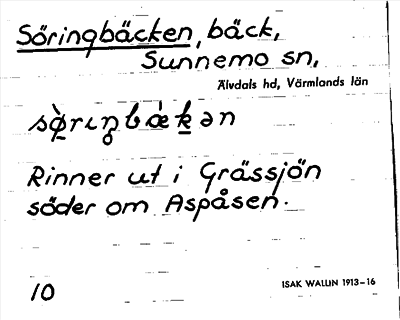 Söringbäcken, bäck,
Sunnemo sn,
Älvdals hd, Värmlands län
Rinner ut i Grässjön
söder om Aspåsen.
10
ISAK WALLIN 1913–16